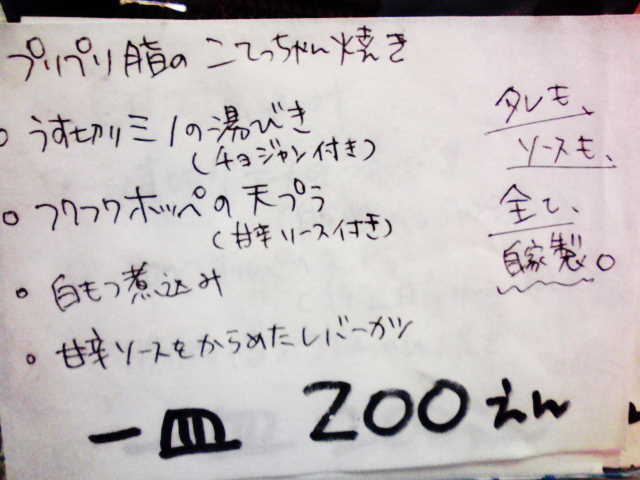 プリプリ脂のこてっちゃん焼き
○ うす切りミノの湯びき
(チョジャン付き)
○ フワフワホッペの天プラ
(甘辛ソース付き)
○ 白もつ煮込み
○ 甘辛ソースをからめたレバーカツ
タレも、
ソースも、
全て、
自家製。
一皿 200えん